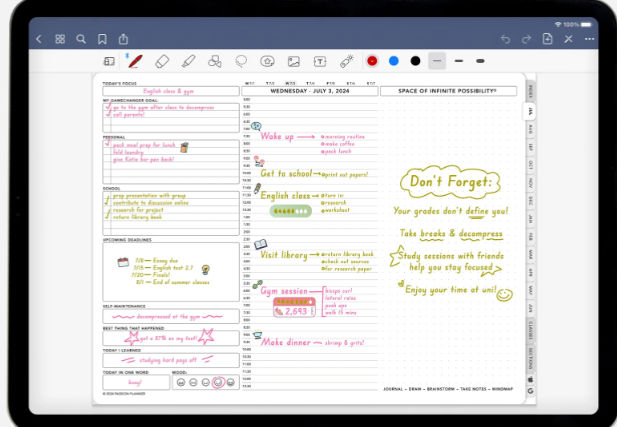 100%
TODAY'S FOCUS
English class & gym
MY GAMECHANGER GOAL:
go to the gym after class to decompress
call parents!
PERSONAL
pack meal prep for lunch
fold laundry
give Katie her pen back!
SCHOOL
prep presentation with group
contribute to discussion online
research for project
return library book
UPCOMING DEADLINES
7/8 — Essay due
7/15 — English test 2.7
7/20 — Finals!
8/1 — End of summer classes
SELF-MAINTENANCE
decompressed at the gym
BEST THING THAT HAPPENED
got a 87% on my test!
TODAY I LEARNED
studying hard pays off
TODAY IN ONE WORD
busy!
MOOD:
© 2024 PASSION PLANNER
WEDNESDAY - JULY 3, 2024
Wake up
morning routine
make coffee
pack lunch
Get to school
print out papers!
English class
turn in:
research
worksheet
Visit library
return library book
check out sources
for research paper
Gym session
bicep curl
lateral raise
push ups
walk 15 mins
2,693
Make dinner — shrimp & grits!
SPACE OF INFINITE POSSIBILITY®
Don't Forget:
Your grades don't define you!
Take breaks & decompress
Study sessions with friends
help you stay focused
Enjoy your time at uni!
JOURNAL – DRAW – BRAINSTORM – TAKE NOTES – MINDMAP
INDEX
JUL
AUG
SEP
OCT
NOV
DEC
JAN
FEB
MAR
APR
MAY
JUN
G